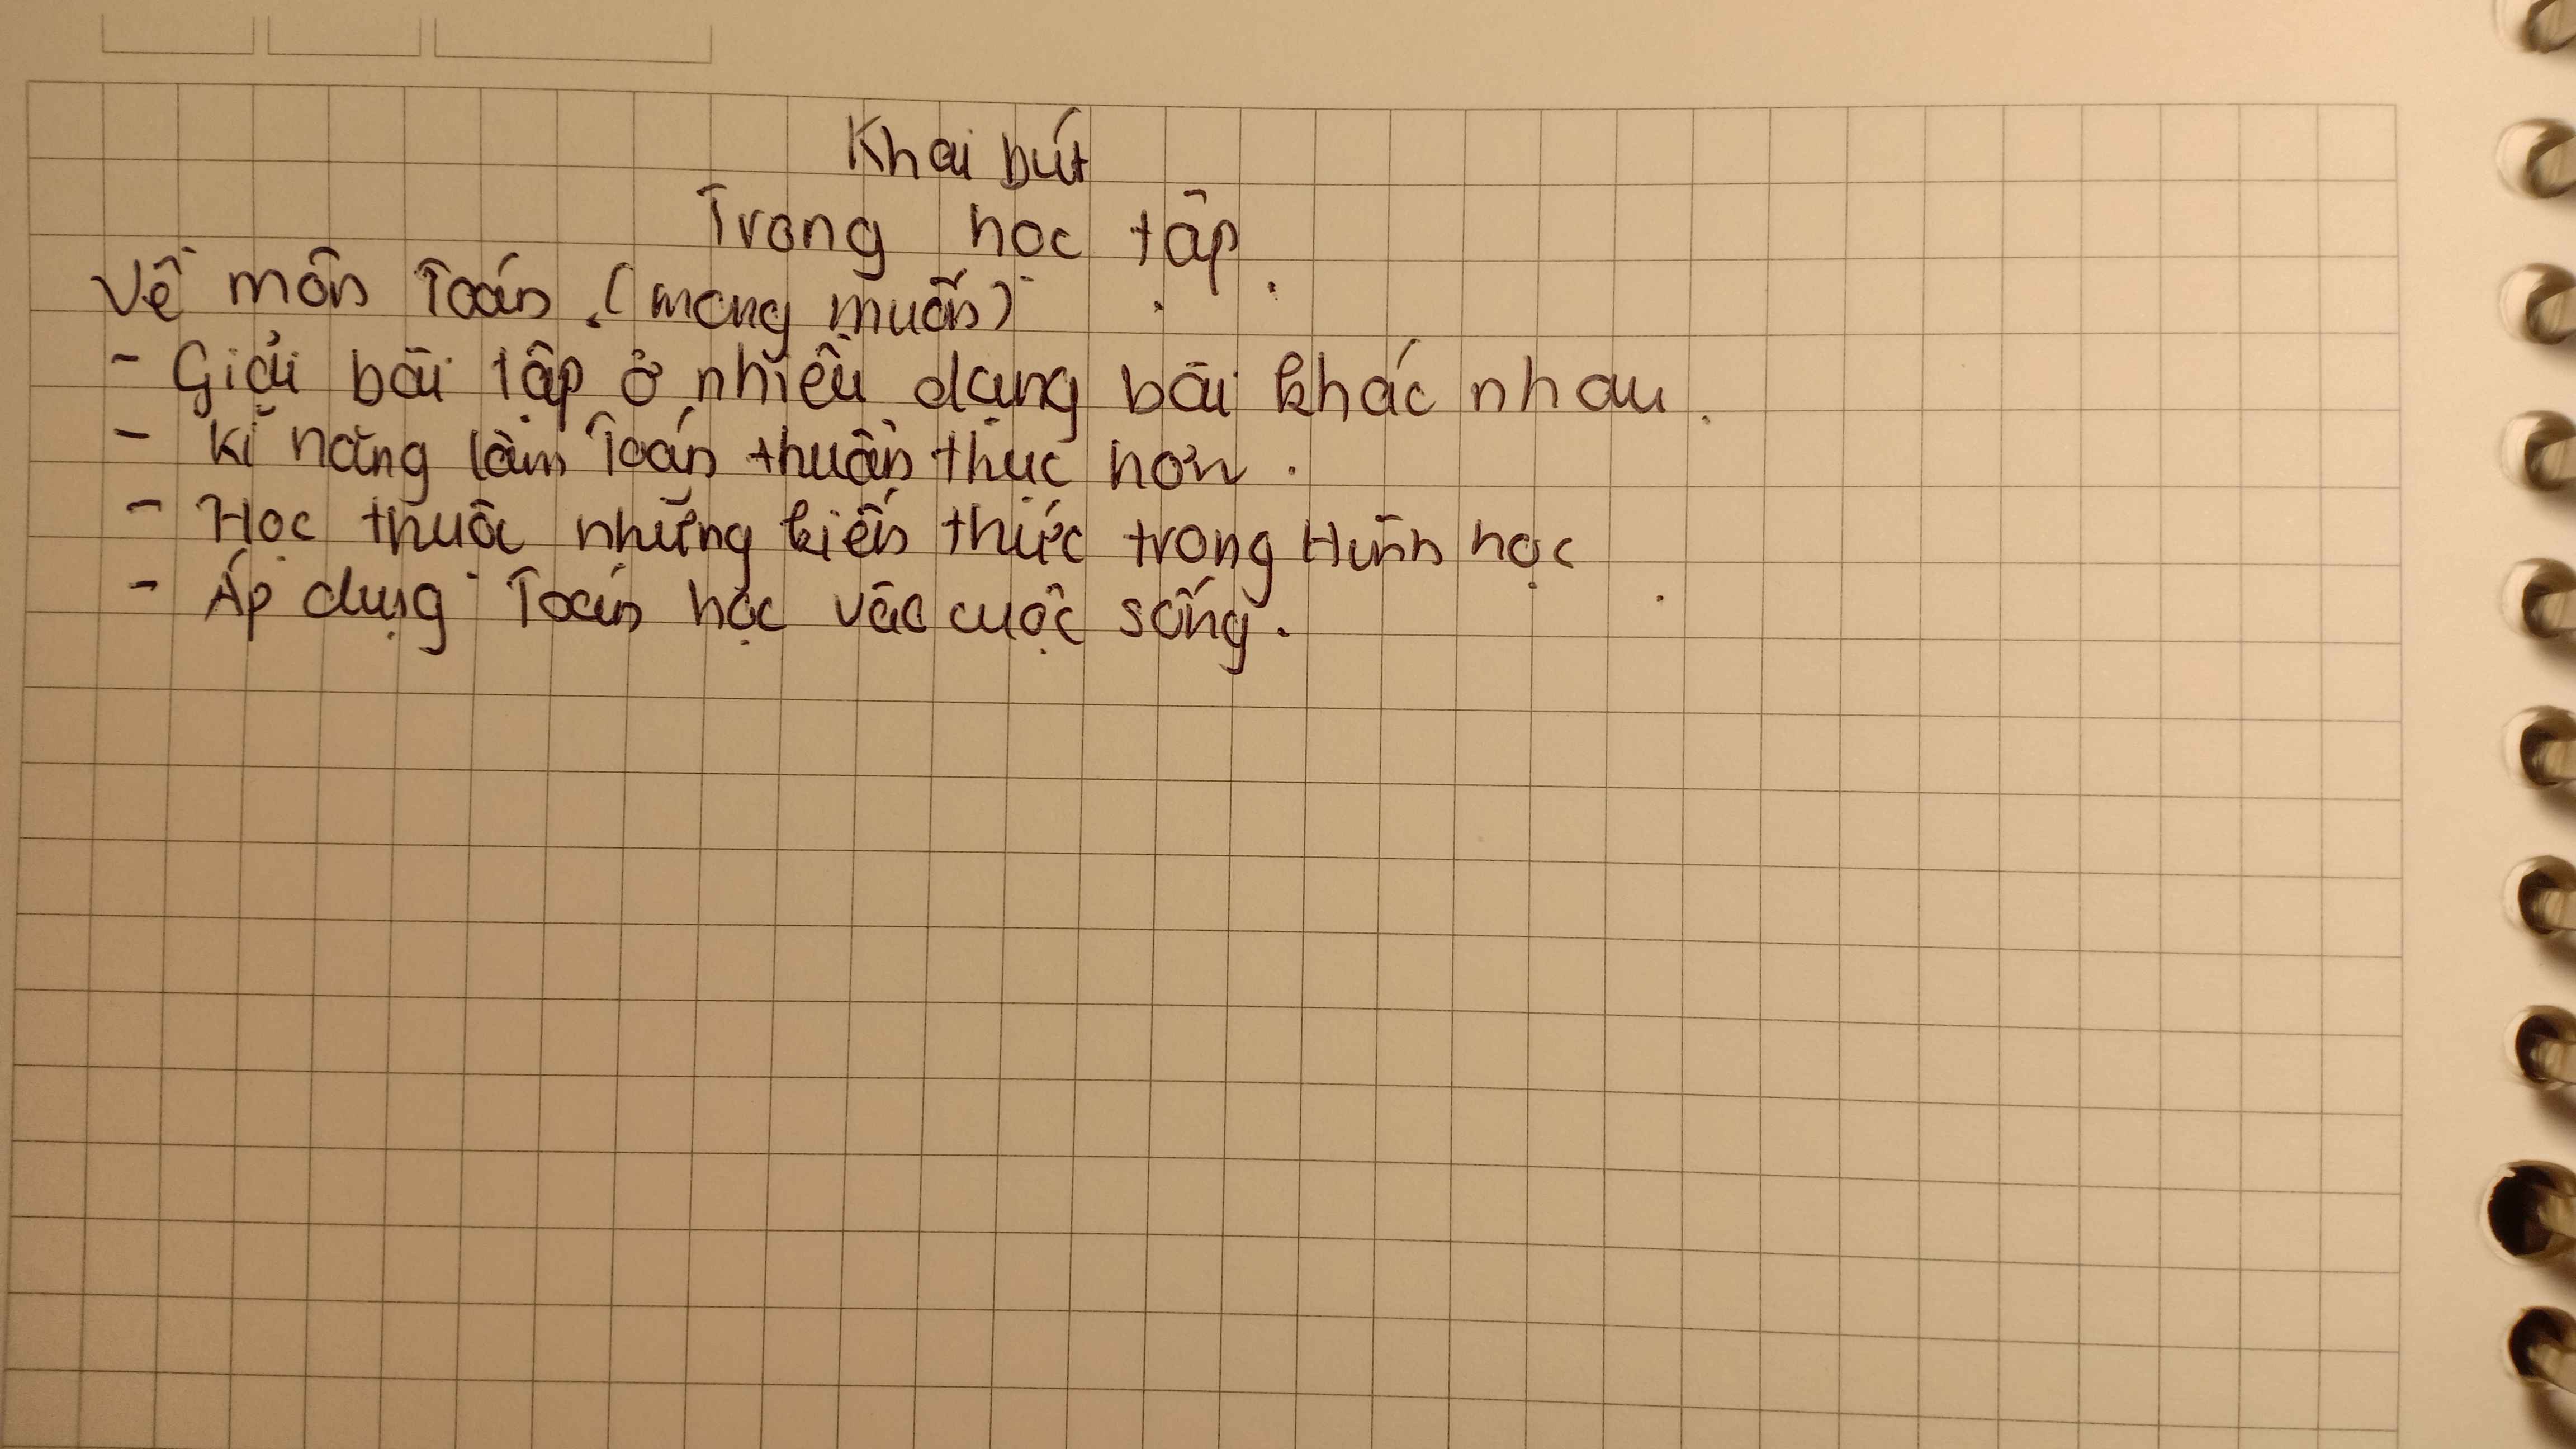 Khai bút
Trong học tập
Về môn Toán (mong muốn)
- Giải bài tập ở nhiều dạng bài khác nhau.
- Kĩ năng làm Toán thuần thục hơn.
- Học thuộc những kiến thức trong Hình học.
- Áp dụng Toán học vào cuộc sống.